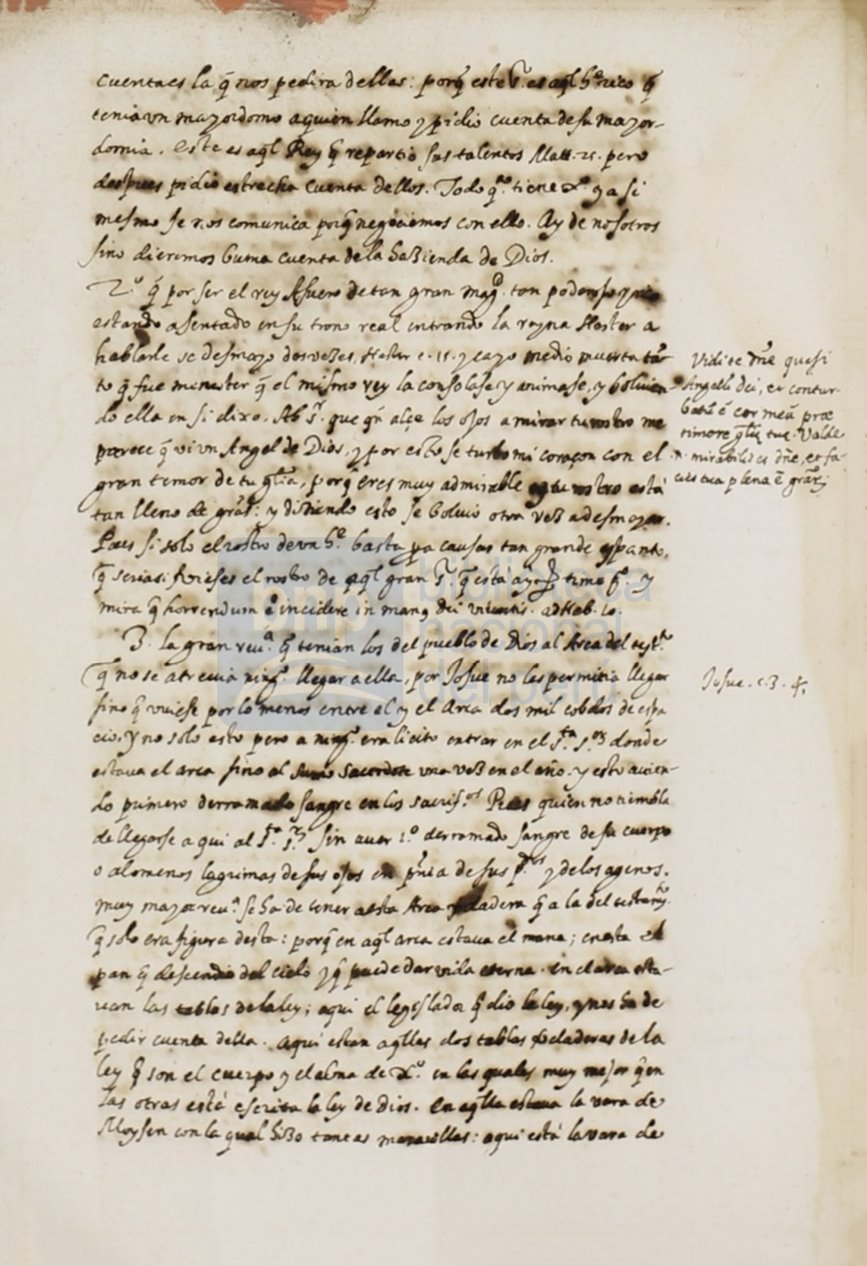 cuenta es la q̃ nos pedira dellas: porq̃ este Sr. es aql hẽ rico q̃
tenia vn mayordomo a quien llamo y pidio cuenta de su mayor-
domia. este es aql Rey q̃ repartio sus talentos Matt. 25. pero
despues pidio estrecha cuenta dellos. Todo qto tiene Xo y a si
mesmo se nos comunica porq̃ negociemos con ello. Ay de nosotros
sino dieremos buena cuenta de la hazienda de Dios.
2.o q̃ por ser el rey Asuero de tan gran magd. tan poderoso
estando asentado en su trono real entrando la reyna Hester a
hablarle se desmayo dos vezes, Hester c. 15. y cayo medio muerta tã-
to q̃ fue menester q̃ el mismo rey la consolase y animase, y boluien
do ella en si dixo. Ah Sr. que qn alçe los ojos a mirar tu rostro me
parece q̃ vi vn Angel de Dios, y por esto se turbo mi coraçon con el
gran temor de tu glĩa, porq̃ eres muy admirable y tu rostro está
tan lleno de grãs: y diziendo esto se boluio otra vez a desmayar.
Pues si solo el rostro de vn hẽ basta pa causar tan grande espanto,
q̃ seria si vieses el rostro de aql gran Sr. q̃ está ay y
mira q̃ horrendum ẽ incidere in man9 dei viuentis. ad Heb. 10.
3. la gran reua. q̃ tenian los del pueblo de Dios al Arca del testo.
q̃ no se atreuia ningo. llegar a ella, por Josue no les permitia llegar
sino q̃ vuiese por lo menos entre el y el Arca dos mil cobdos de espa
cio. y no solo esto pero a ningo. era licito entrar en el Sta. Srz donde
estaua el arca sino al sumo sacerdote vna vez en el año. y esto auien-
do primero derramado sangre en los sacrifos. Pues quien no tiembla
de llegarse aqui al Sta. Srz sin auer 1o. derramado sangre de su cuerpo
o alomenos lagrimas de sus ojos en pñia de sus pdos y de los agenos.
muy mayor reua. se ha de tener a esta Arca xdadera q̃ a la del testamto.
q̃ solo era figura desta: porq̃ en aql arca estaua el mana; en esta el
pan q̃ descendio del cielo y q̃ puede dar vida eterna. en el arca esta-
uan las tablas de la ley; aqui el legislador q̃ dio la ley, y nos ha de
pedir cuenta della. aqui estan aqllas dos tablas xdaderas de la
ley q̃ son el cuerpo y el alma de Xo. en las quales muy mejor q̃ en
las otras está escrita la ley de Dios. en aqlla estaua la vara de
Moysen con la qual hizo tantas marauillas: aqui está la vara de
Vidi te dñe quasi
Angelũ dei, et contur
batũ ẽ cor meũ præ
timore glĩæ tuæ. Valde
n. mirabilis es dñe, et fa-
cies tua plena ẽ grãrũ
Josue. c. 3. 4.
biblioteca
nacional
del perú